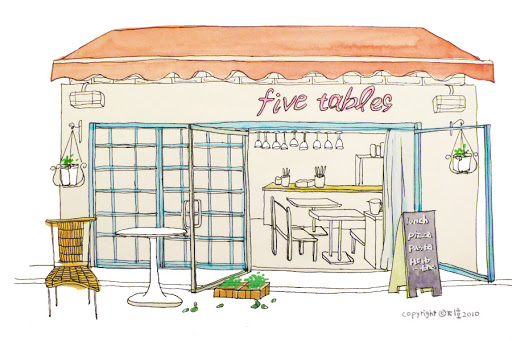 five tables
lunch
pizza
pasta
Herb
copyright ©
2010